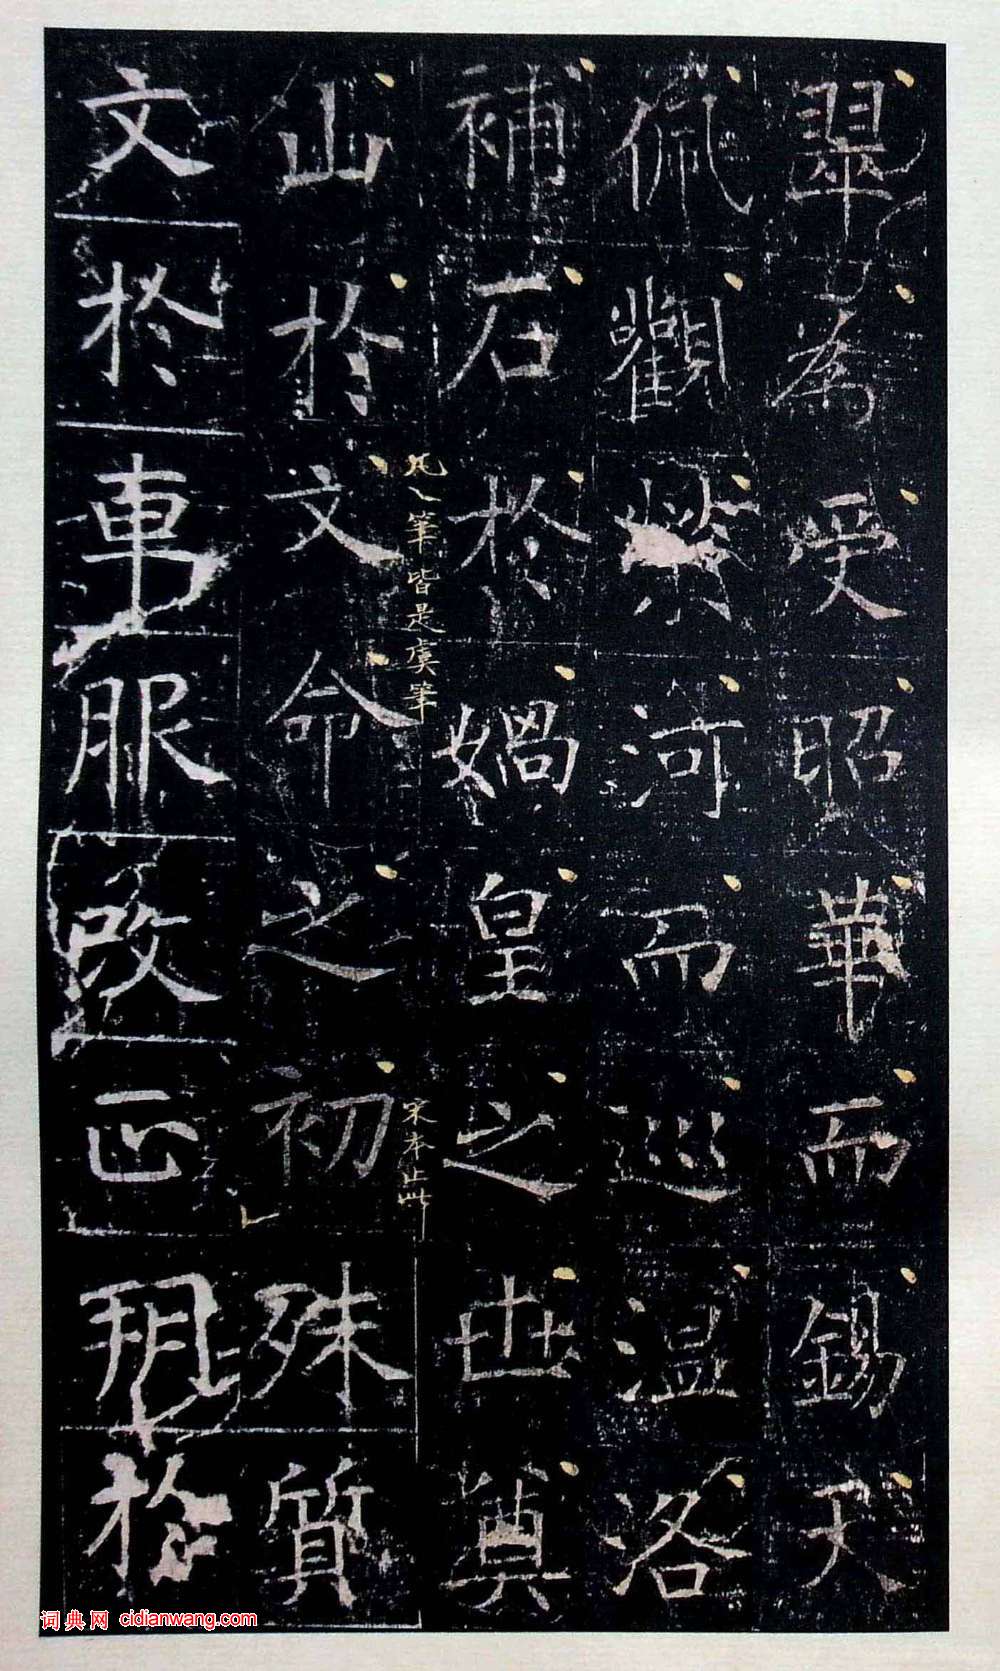 翠為受昭華而錫天
佩觀榮河而巡溫洛
補石於媧皇之世奠
凡、筆皆是虞筆
宋本止此
山於文命之初殊質
文於車服改正朔於
词典网 cidianwang.com